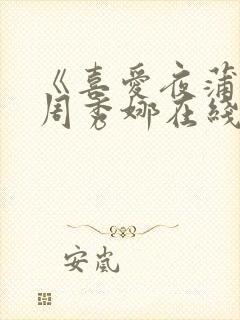 《喜爱夜蒲
周秀娜在线
安岚